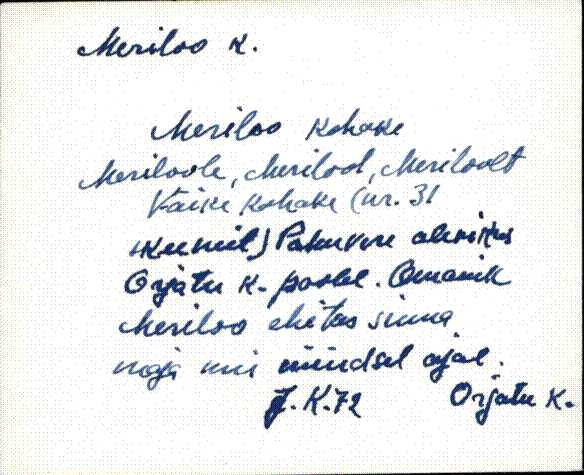 Meriloo K.
Meriloo kohake
Meriloole, Merilool, Meriloolt
Väike kohake (nr. 31
skeemil) Pakuvere alevikus
Orjatu k. poolel. Omanik
Meriloo ehitas sinna
maja uuel ajal.
J. K. 72 Orjatu K.